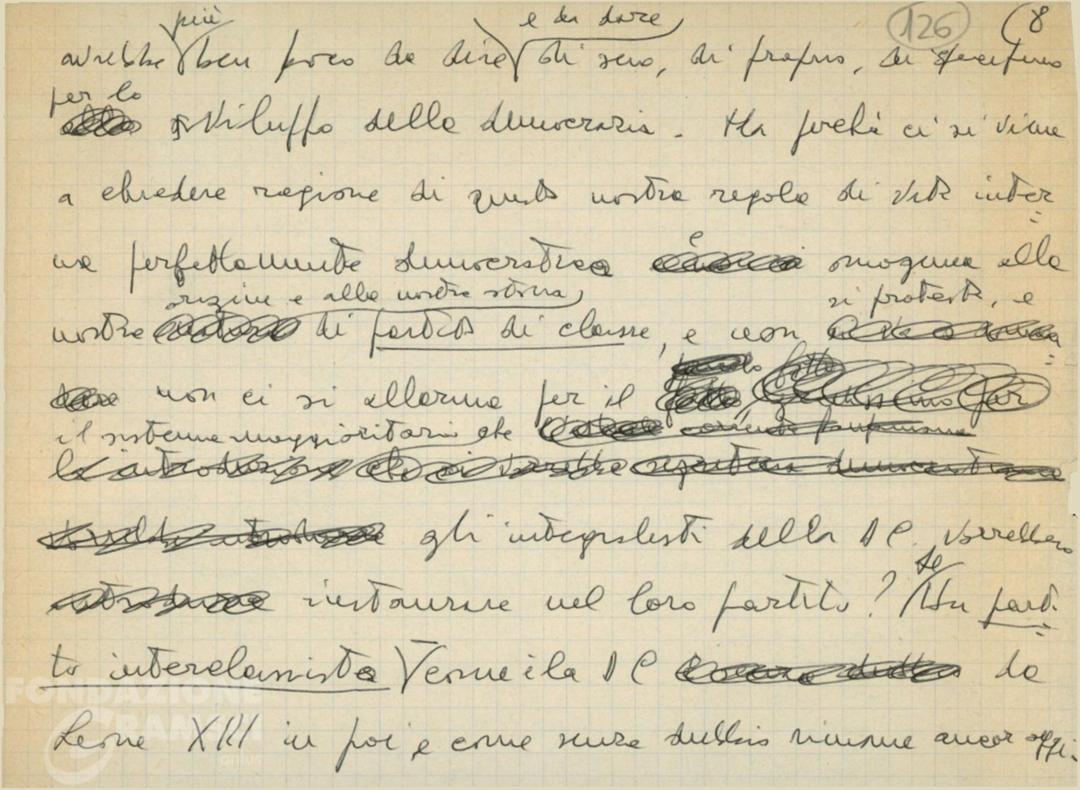 126 (8
più e da dare
avrebbe ben poco da dire di suo, di proprio, di specifico
per lo
sviluppo della democrazia. Ma perché ci si viene
a chiedere ragione di questa nostra regola di vita inter
na perfettamente democratica e omogenea alla
origine e alla nostra storia, si protesta, e
nostra di partito di classe, e non
non ci si allarma per il
il sistema maggioritario che
gli integralisti della DC vorrebbero
se
instaurare nel loro partito? Ma parti
to interclassista come è la DC da
Leone XIII in poi, e come senza dubbio rimane ancor oggi.
FONDAZIONE
GRAMSCI
onlus